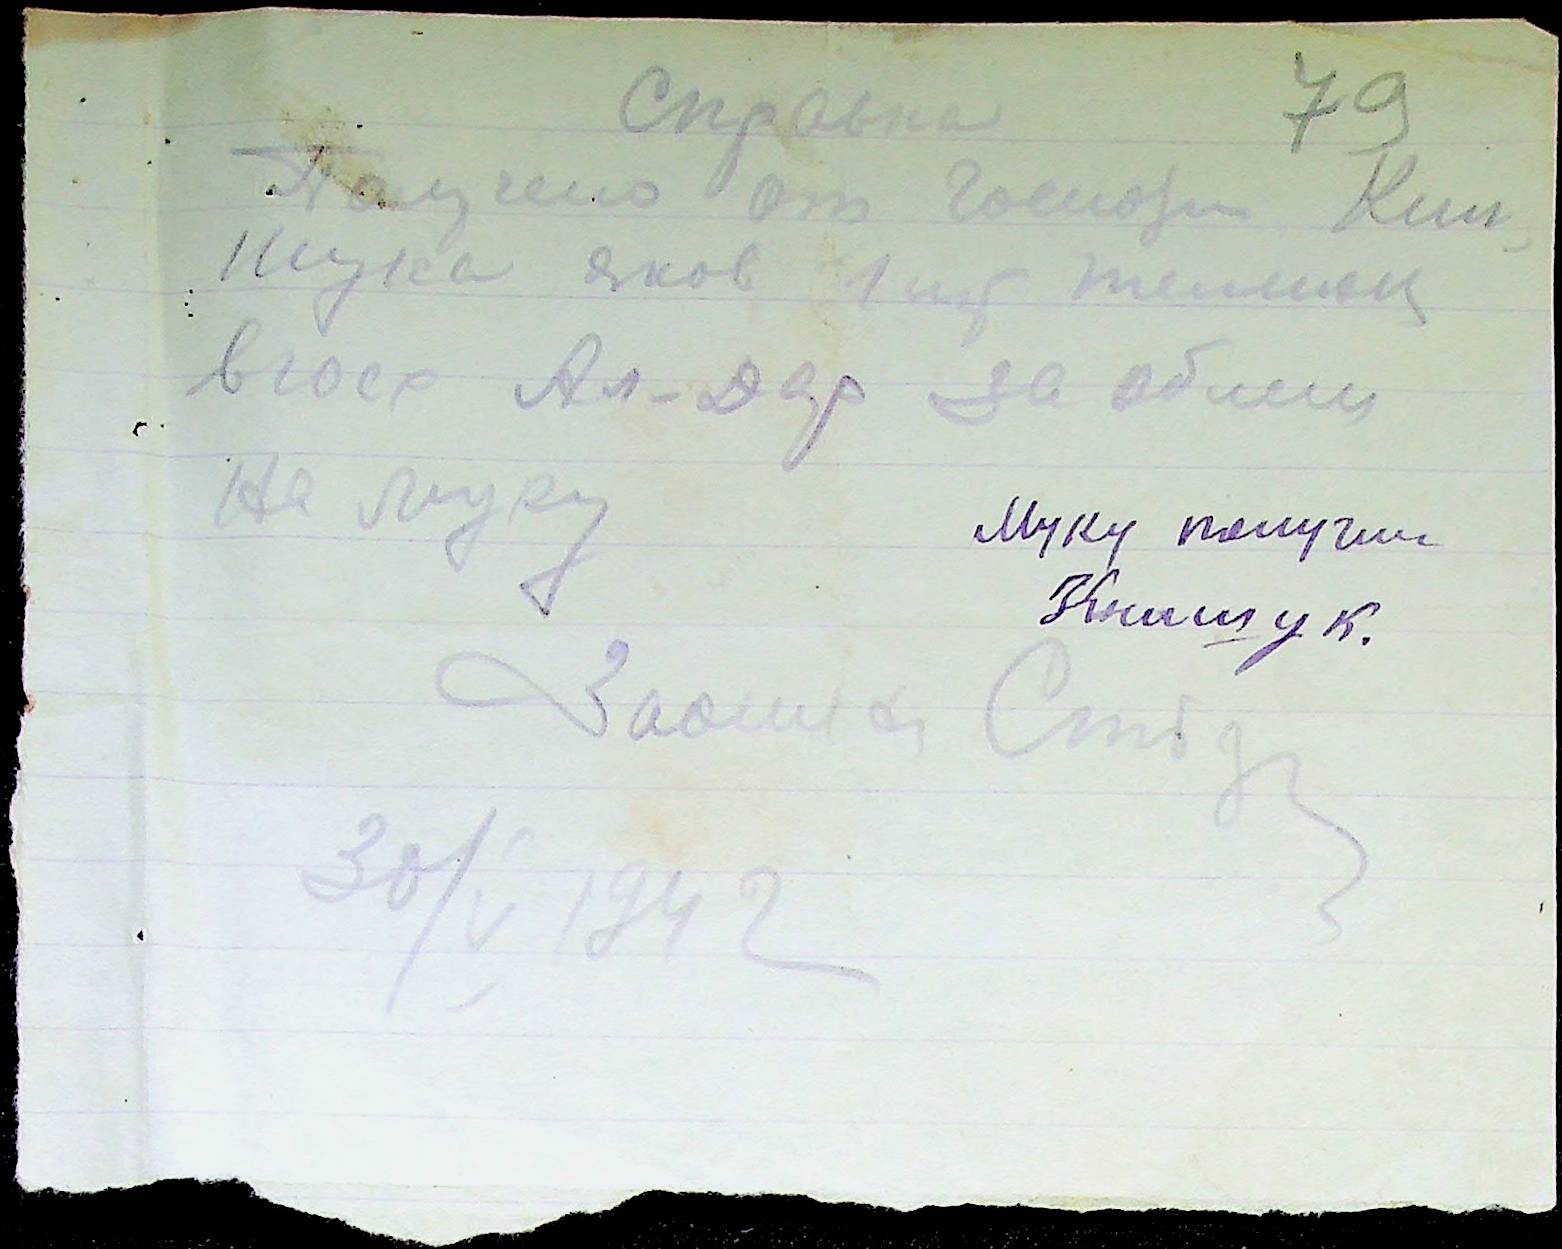 Справка 79
Получено от господин Кни-
щука яков 1 шт теленок
в госх Ал-Дар за обмен
на муку
Муку получил
Книщук.
30/V 1942